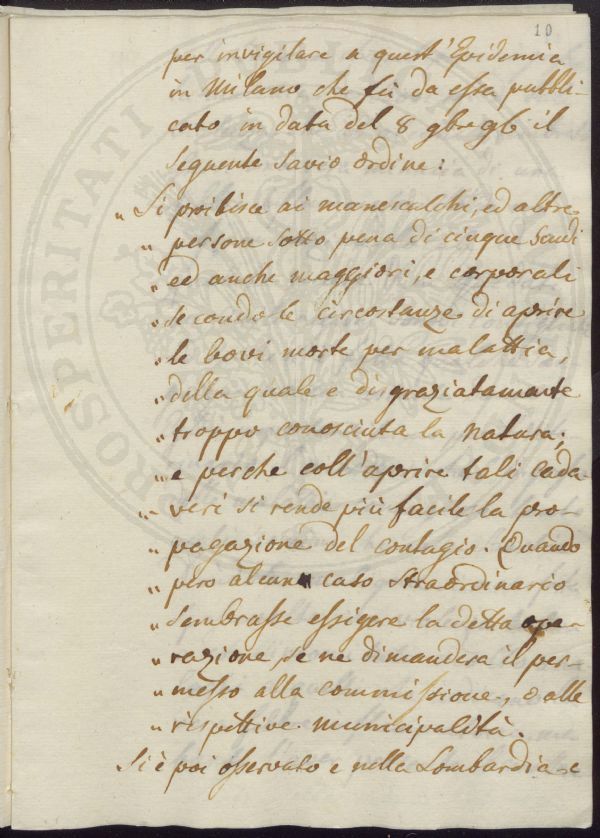 10
per invigilare a quest'Epidemia
in Milano che fù da essa pubbli-
cato in data del 8 gbre 96 il
seguente savio ordine:
„ Si proibisce ai manescalchi, ed altre
„ persone sotto pena di cinque Scudi
„ ed anche maggiori, e corporali
„ secondo le circostanze di aprire
„ le bovi morte per malattia,
„ della quale e disgraziatamente
„ troppo conosciuta la natura;
„ e perche coll'aprire tali cada-
„ veri si rende più facile la pro-
„ pagazione del contagio. Quando
„ però alcun caso straordinario
„ sembrasse essigere la detta ope-
„ razione, se ne dimanderà il per-
„ messo alla commissione, o alle
„ rispettive municipalità.
Si è poi osservato e nella Lombardia e
PROSPERITATI